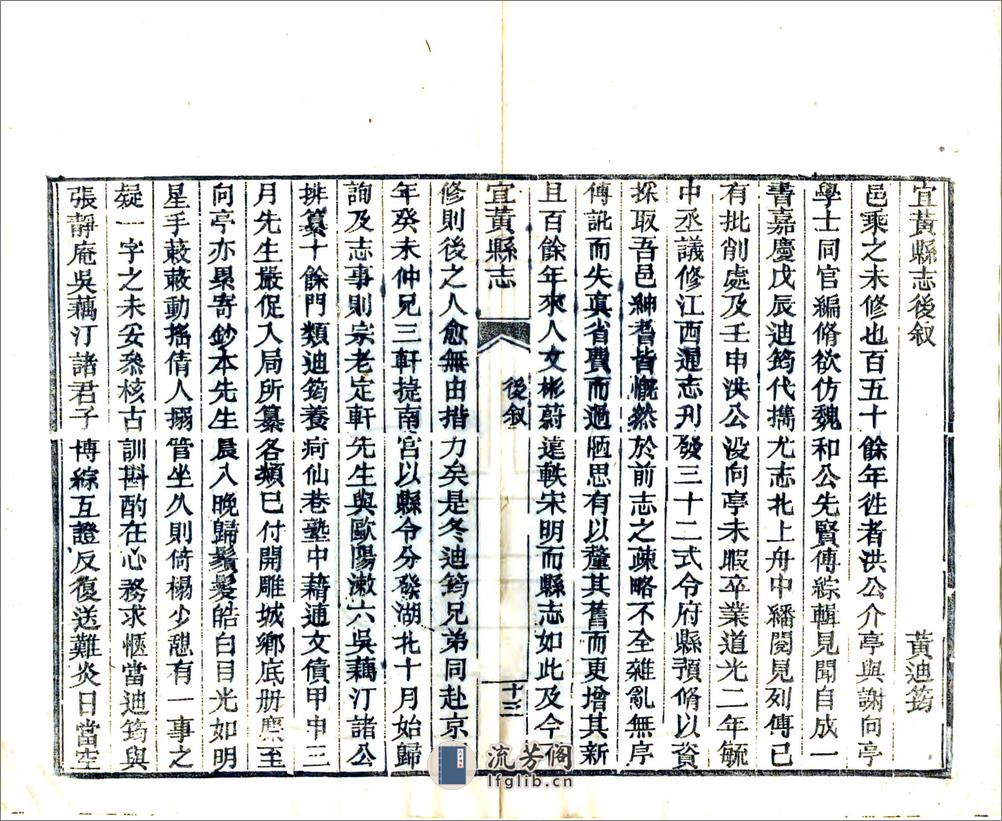 宜黃縣志後叙
黃迪筠
邑乘之未修也百五十餘年徃者洪公介亭與謝向亭
學士同官編脩欲仿魏和公先賢傳綜輯見聞自成一
書嘉慶戊辰迪筠代攜尤志北上舟中繙閱見列傳已
有批削處及壬申洪公没向亭未暇卒業道光二年毓
中丞議修江西通志刋發三十二式令府縣預脩以資
採取吾邑紳耆皆慨然於前志之疎略不全雜亂無序
傳訛而失真省費而過陋思有以釐其舊而更增其新
且百餘年來人文彬蔚遠軼宋明而縣志如此及今
宜黃縣志
後叙
十三
修則後之人愈無由措力矣是冬迪筠兄弟同赴京
年癸未仲兄三軒捷南宮以縣令分發湖北十月始歸
詢及志事則宗老定軒先生與歐陽漱六吳藕汀諸公
排纂十餘門類迪筠養疴仙巷塾中藉通文債甲申三
月先生嚴促入局所纂各類已付開雕城鄉底册麕至
向亭亦累寄鈔本先生晨入晚歸鬚髮皓白目光如明
星手蔌蔌動摇倩人搦管坐久則倚榻少憇有一事之
疑一字之未安叅核古訓斟酌在心務求愜當迪筠與
張靜庵吳藕汀諸君子博綜互證反復送難炎日當空
流芳阁
lfglib.cn